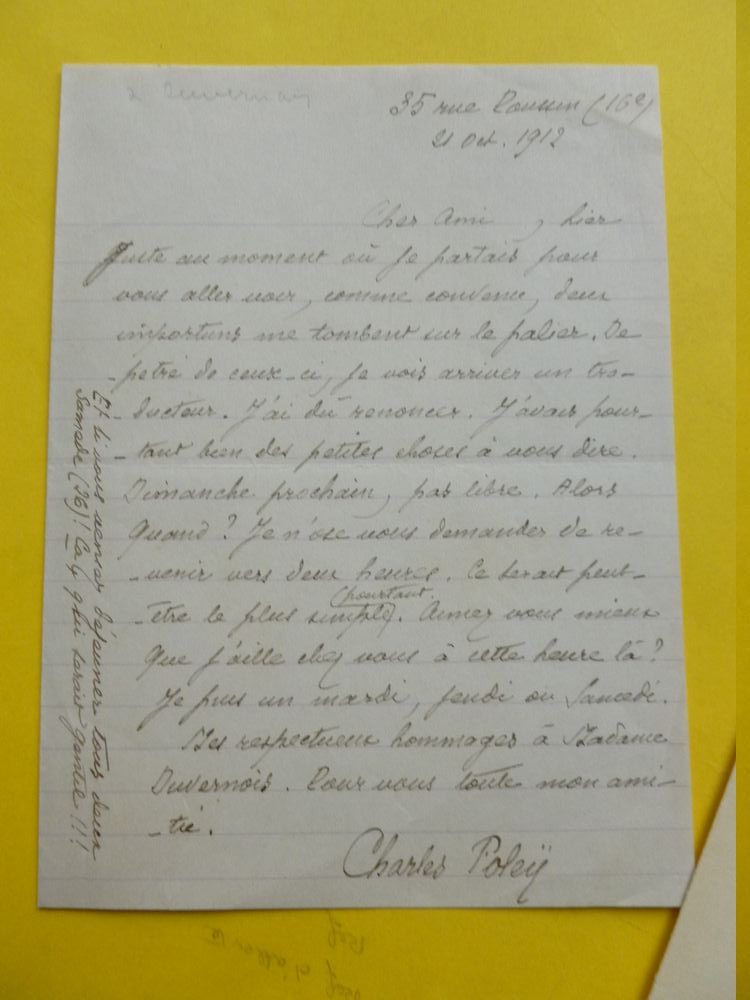 35 rue Poussin (16e)
21 Oct. 1912
Cher Ami, hier
juste au moment où je partais pour
vous aller voir, comme convenu, deux
importuns me tombent sur le palier. De
-petré de ceux-ci, je vois arriver un tra-
-ducteur. J'ai dû renoncer. J'avais pour-
-tant bien des petites choses à vous dire.
Dimanche prochain, pas libre. Alors
quand? Je n'ose vous demander de re-
-venir vers deux heures. Ce serait peut-
(pourtant.
-être le plus simple). Aimez vous mieux
que j'aille chez vous à cette heure là?
Je puis un mardi, jeudi ou Samedi.
Mes respectueux hommages à Madame
Duvernois. Pour vous toute mon ami-
-tié.
Charles Foleÿ
Et si vous veniez déjeuner tous deux
Samedi (26)! Ça qui serait gentil!!!